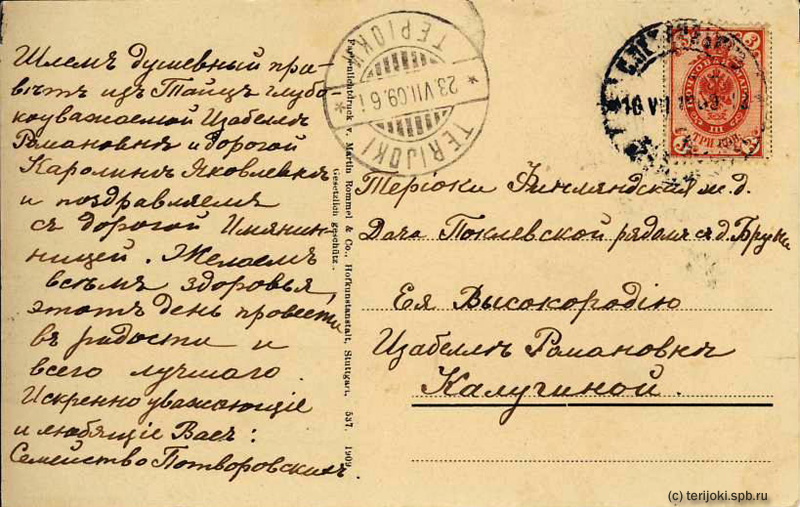 Шлемъ душевный при-
вѣтъ изъ Тайцъ глубо
коуважаемой Изабеллѣ
Романовнѣ и дорогой
Каролинѣ Яковлевнѣ
и поздравляемъ
съ дорогой Имянин-
ницей. Желаемъ
всѣмъ здоровья,
этотъ день провести
въ радости и
всего лучшаго.
Искренно уважающіе
и любящіе Васъ:
Семейство Потворовскихъ.
Farbenlichtdruck v. Martin Rommel & Co., Hofkunstanstalt, Stuttgart. 537. 1909.
Gesetzlich geschützt.
ТЕРІОКИ
23.VII.09.6 i
TERIJOKI
3
ТРИ КОП.
III
Теріоки Финляндская ж.д.
Дача Поклевской рядомъ съ д. Бруни
Ея Высокородію
Изабеллѣ Романовнѣ
Калугиной.
(c) terijoki.spb.ru